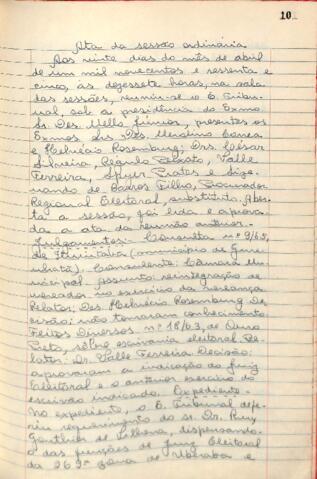 10
Ata da sessão ordinária
Aos vinte dias do mês de abril
de um mil novecentos e sessenta e
cinco, às dezessete horas, na sala
das sessões, reuniu-se o E. Tribu-
nal, sob a presidência do Exmo.
Sr. Des. Mello Júnior, presentes os
Exmos. Srs. Des. Merolino Corrêa
e Helvécio Rosenburg; Drs. César
Silveira, Régulo Peixoto, Valle
Ferreira, Spyer Prates e Sizе-
nando de Barros Filho, Procurador
Regional Eleitoral, substituto. Aber-
ta a sessão, foi lida e aprova-
da a ata da reunião anterior.
Julgamentos: Consulta nº 9/65,
de Itumirim (município de
). Consulente: Câmara Mu-
nicipal. Assunto: reintegração de
vereador no exercício da vereança
Relator: Des. Helvécio Rosenburg De-
cisão: não tomaram conhecimento
Feitos Diversos nº 18/63, de Ouro
Preto, sôbre escrivania eleitoral Re-
lator: Dr. Valle Ferreira Decisão:
aprovaram a indicação do Juiz
Eleitoral e o anterior exercício do
escrivão indicado. Expediente:
No expediente, o E. Tribunal defe-
riu requerimento do sr. Dr. Ruy
Gouthier de Vilhena, dispensando-
o das funções de Juiz Eleitoral
da 269ª zona de Uberaba e